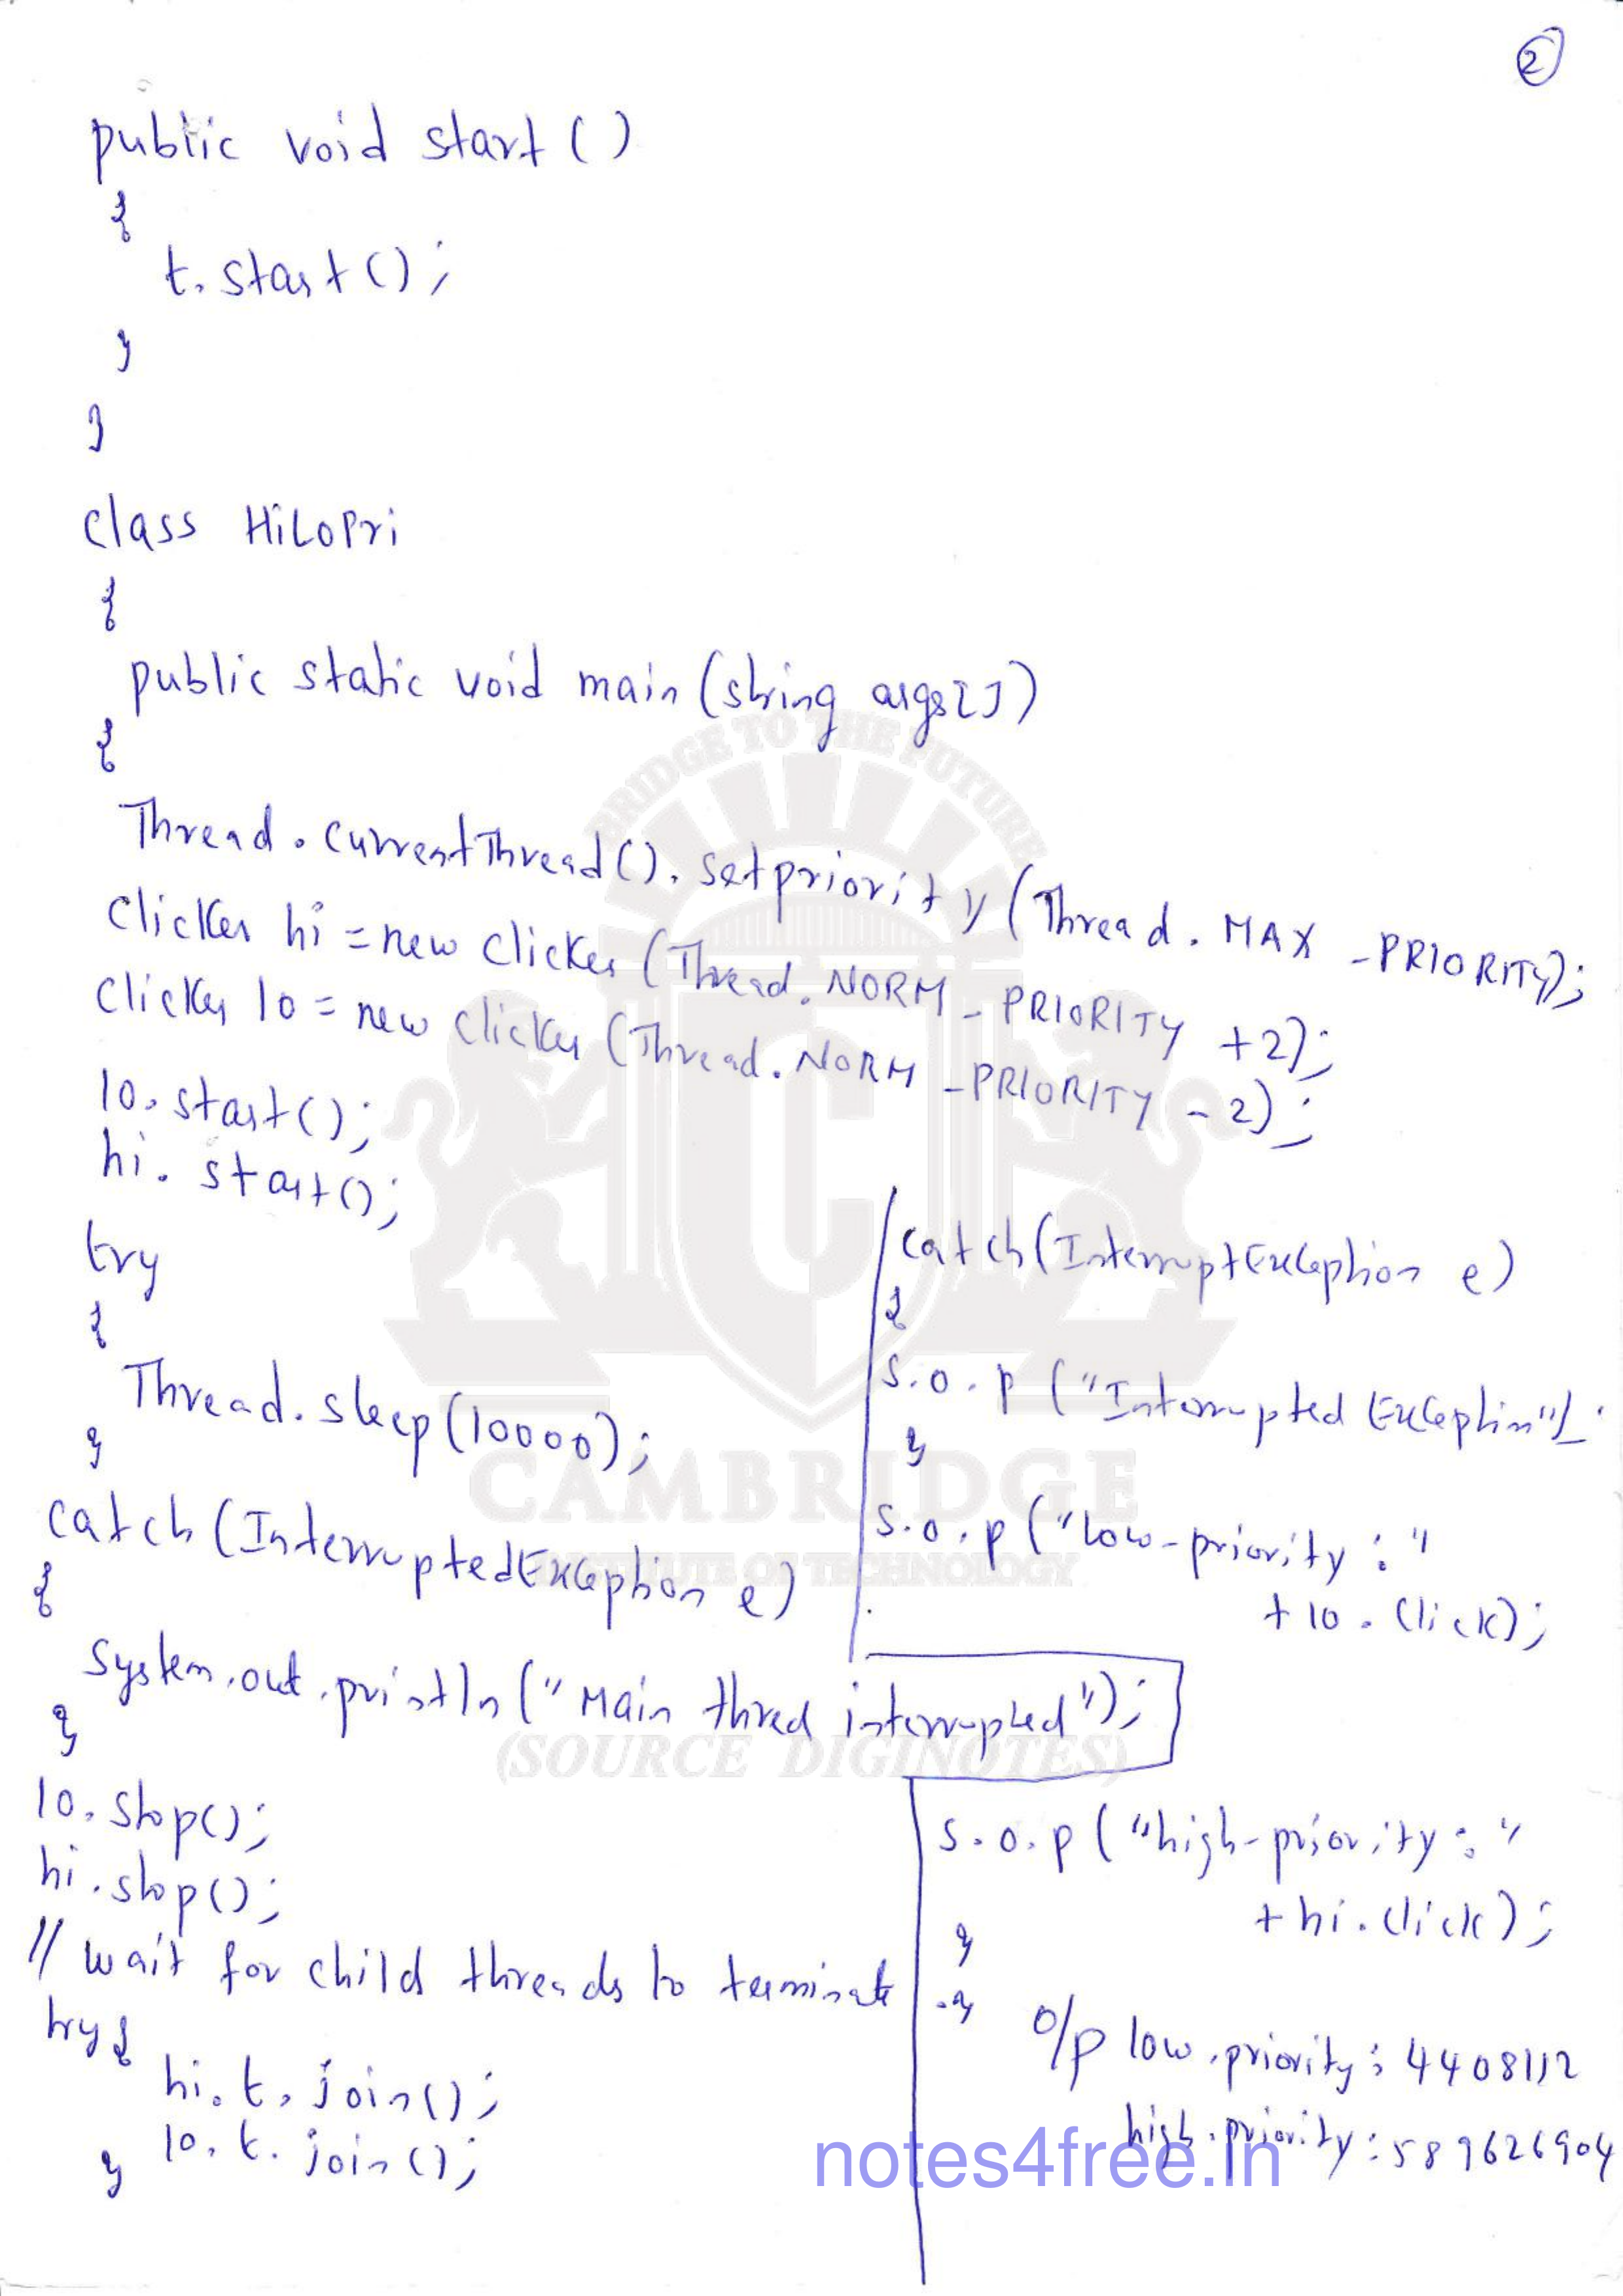 2
public void start()
{
t.start();
}
}
class HiLoPri
{
public static void main(string args[])
{
Thread.currentThread().setpriority(Thread.MAX_PRIORITY);
clicker hi = new clicker(Thread.NORM_PRIORITY +2);
clicker lo = new clicker(Thread.NORM_PRIORITY -2);
lo.start();
hi.start();
try
{
Thread.sleep(10000);
}
catch(InterruptedException e)
{
System.out.println("Main thred interrupted");
}
lo.stop();
hi.stop();
// wait for child threads to terminate
try{
hi.t.join();
lo.t.join();
}
catch(InterruptException e)
{
S.o.p("Interrupted Exception");
}
S.o.p("low-priority:"
+lo.click);
S.o.p("high-priority:"
+hi.click);
}
}
o/p low.priority: 4408112
high.priority: 589626904
BRIDGE TO THE FUTURE
C
CAMBRIDGE
INSTITUTE OF TECHNOLOGY
(SOURCE DIGINOTES)
notes4free.in